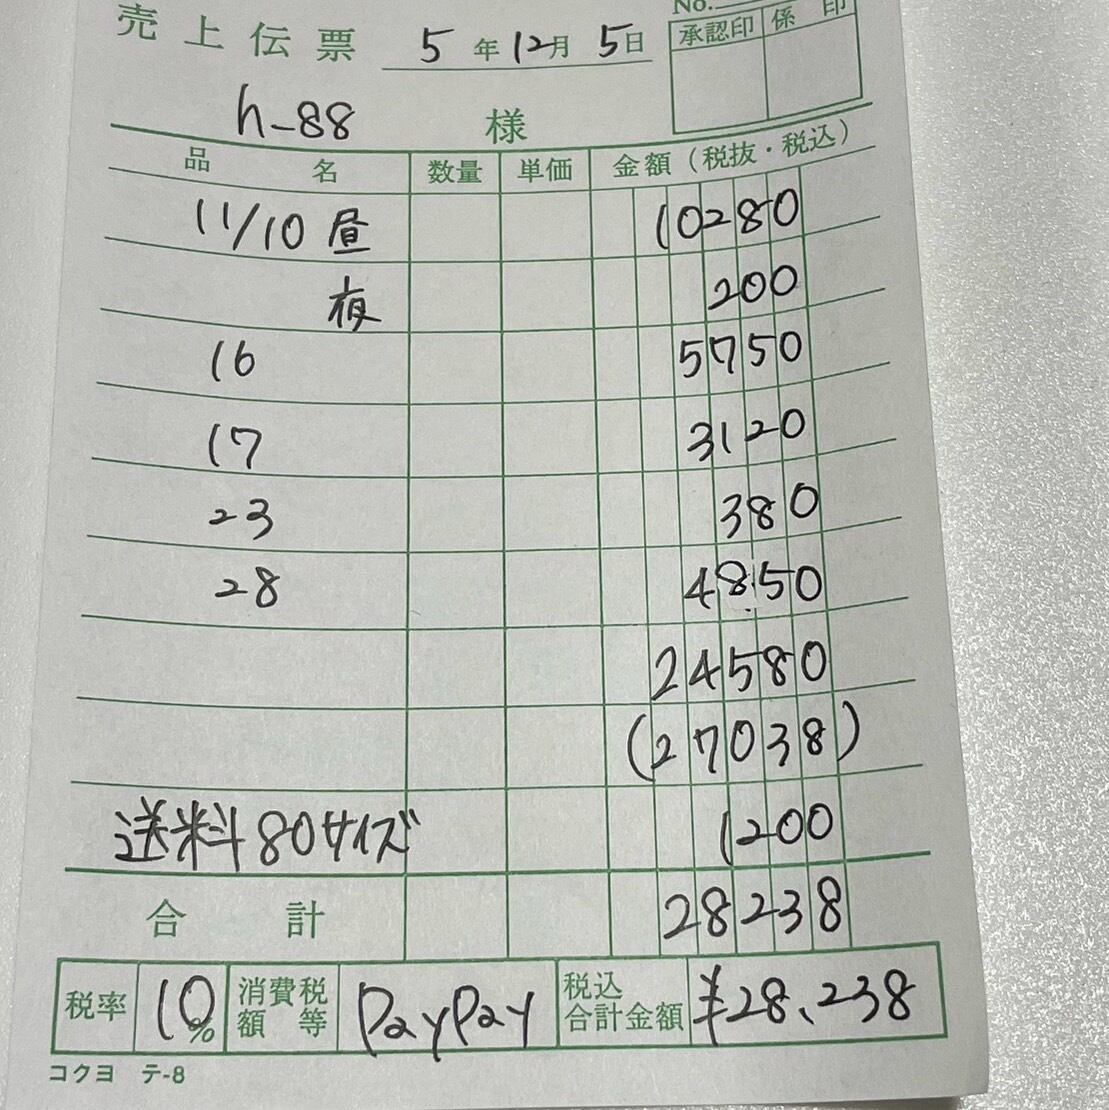 No.
売上伝票 5年12月5日
承認印 係印
h-88 様
品名 数量 単価 金額(税抜・税込)
11/10 昼 10280
夜 200
16 5750
17 3120
23 380
28 4850
24580
(27038)
送料80サイズ 1200
合計 28238
税率 10% 消費税額等 PayPay 税込合計金額 ¥28、238
コクヨ テ-8